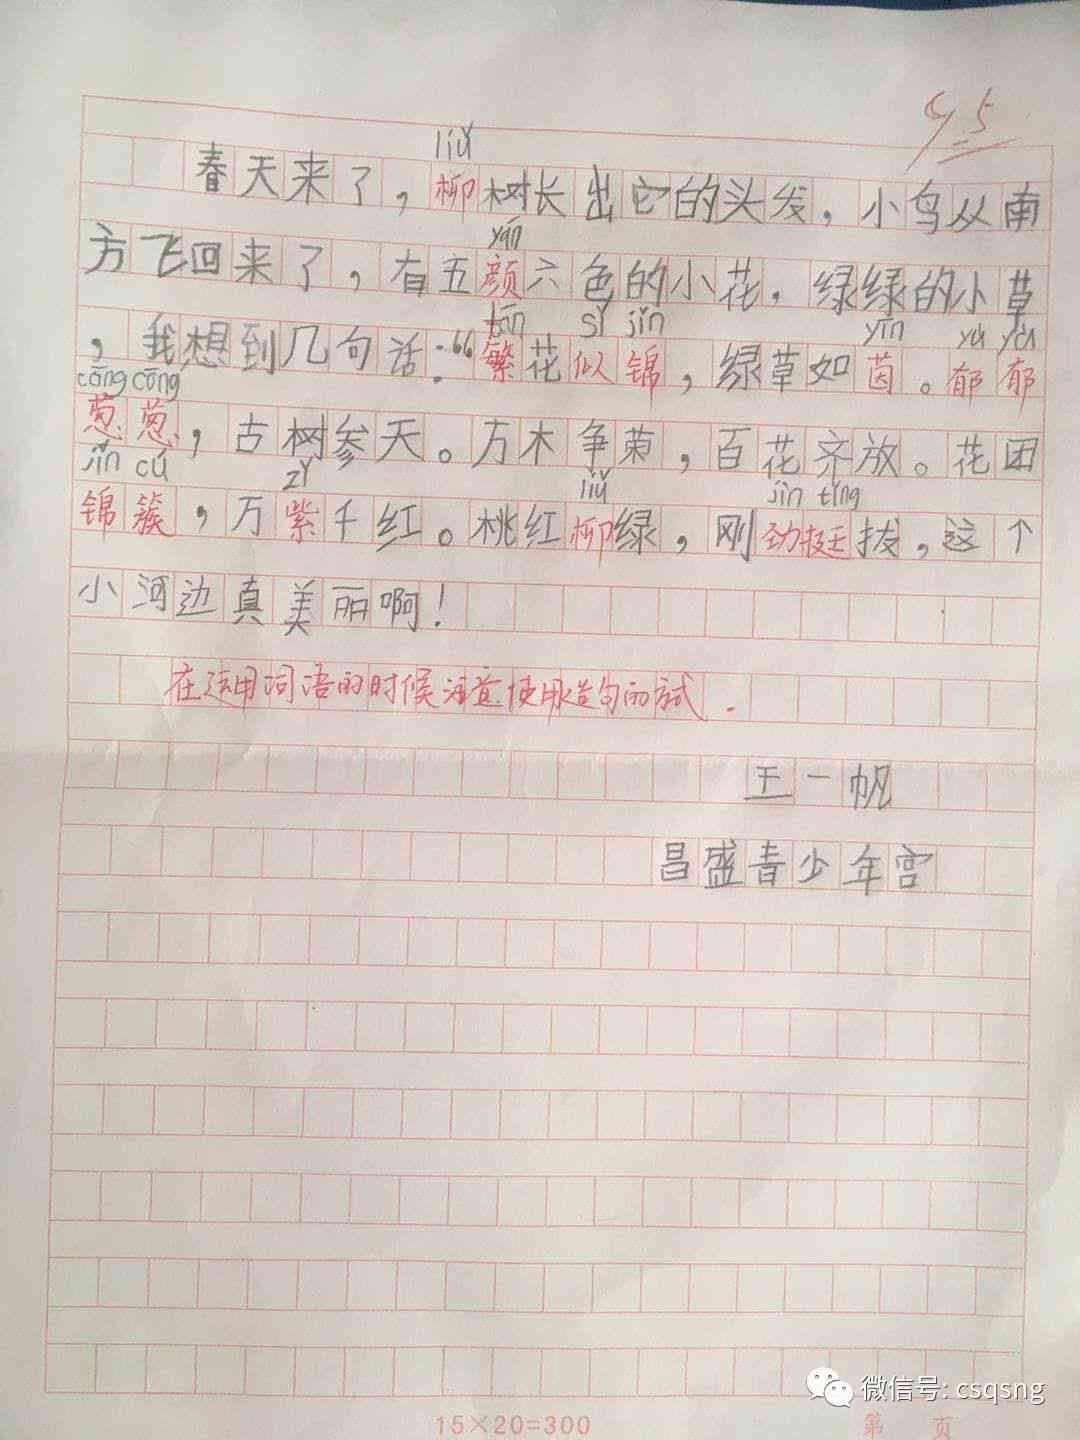 95
liǔ
春天来了，柳树长出它的头发，小鸟从南
yán
方飞回来了，有五颜六色的小花，绿绿的小草
fán sì jǐn yīn yù yù
，我想到几句话：“繁花似锦，绿草如茵。郁郁
cōng cōng
葱葱，古树参天。万木争荣，百花齐放。花团
jǐn cù zǐ liǔ jìn tǐng
锦簇，万紫千红。桃红柳绿，刚劲挺拔，这个
小河边真美丽啊！
在运用词语的时候注意使用造句的方式.
王一帆
昌盛青少年宫
15×20=300
第 页
微信号: csqsng